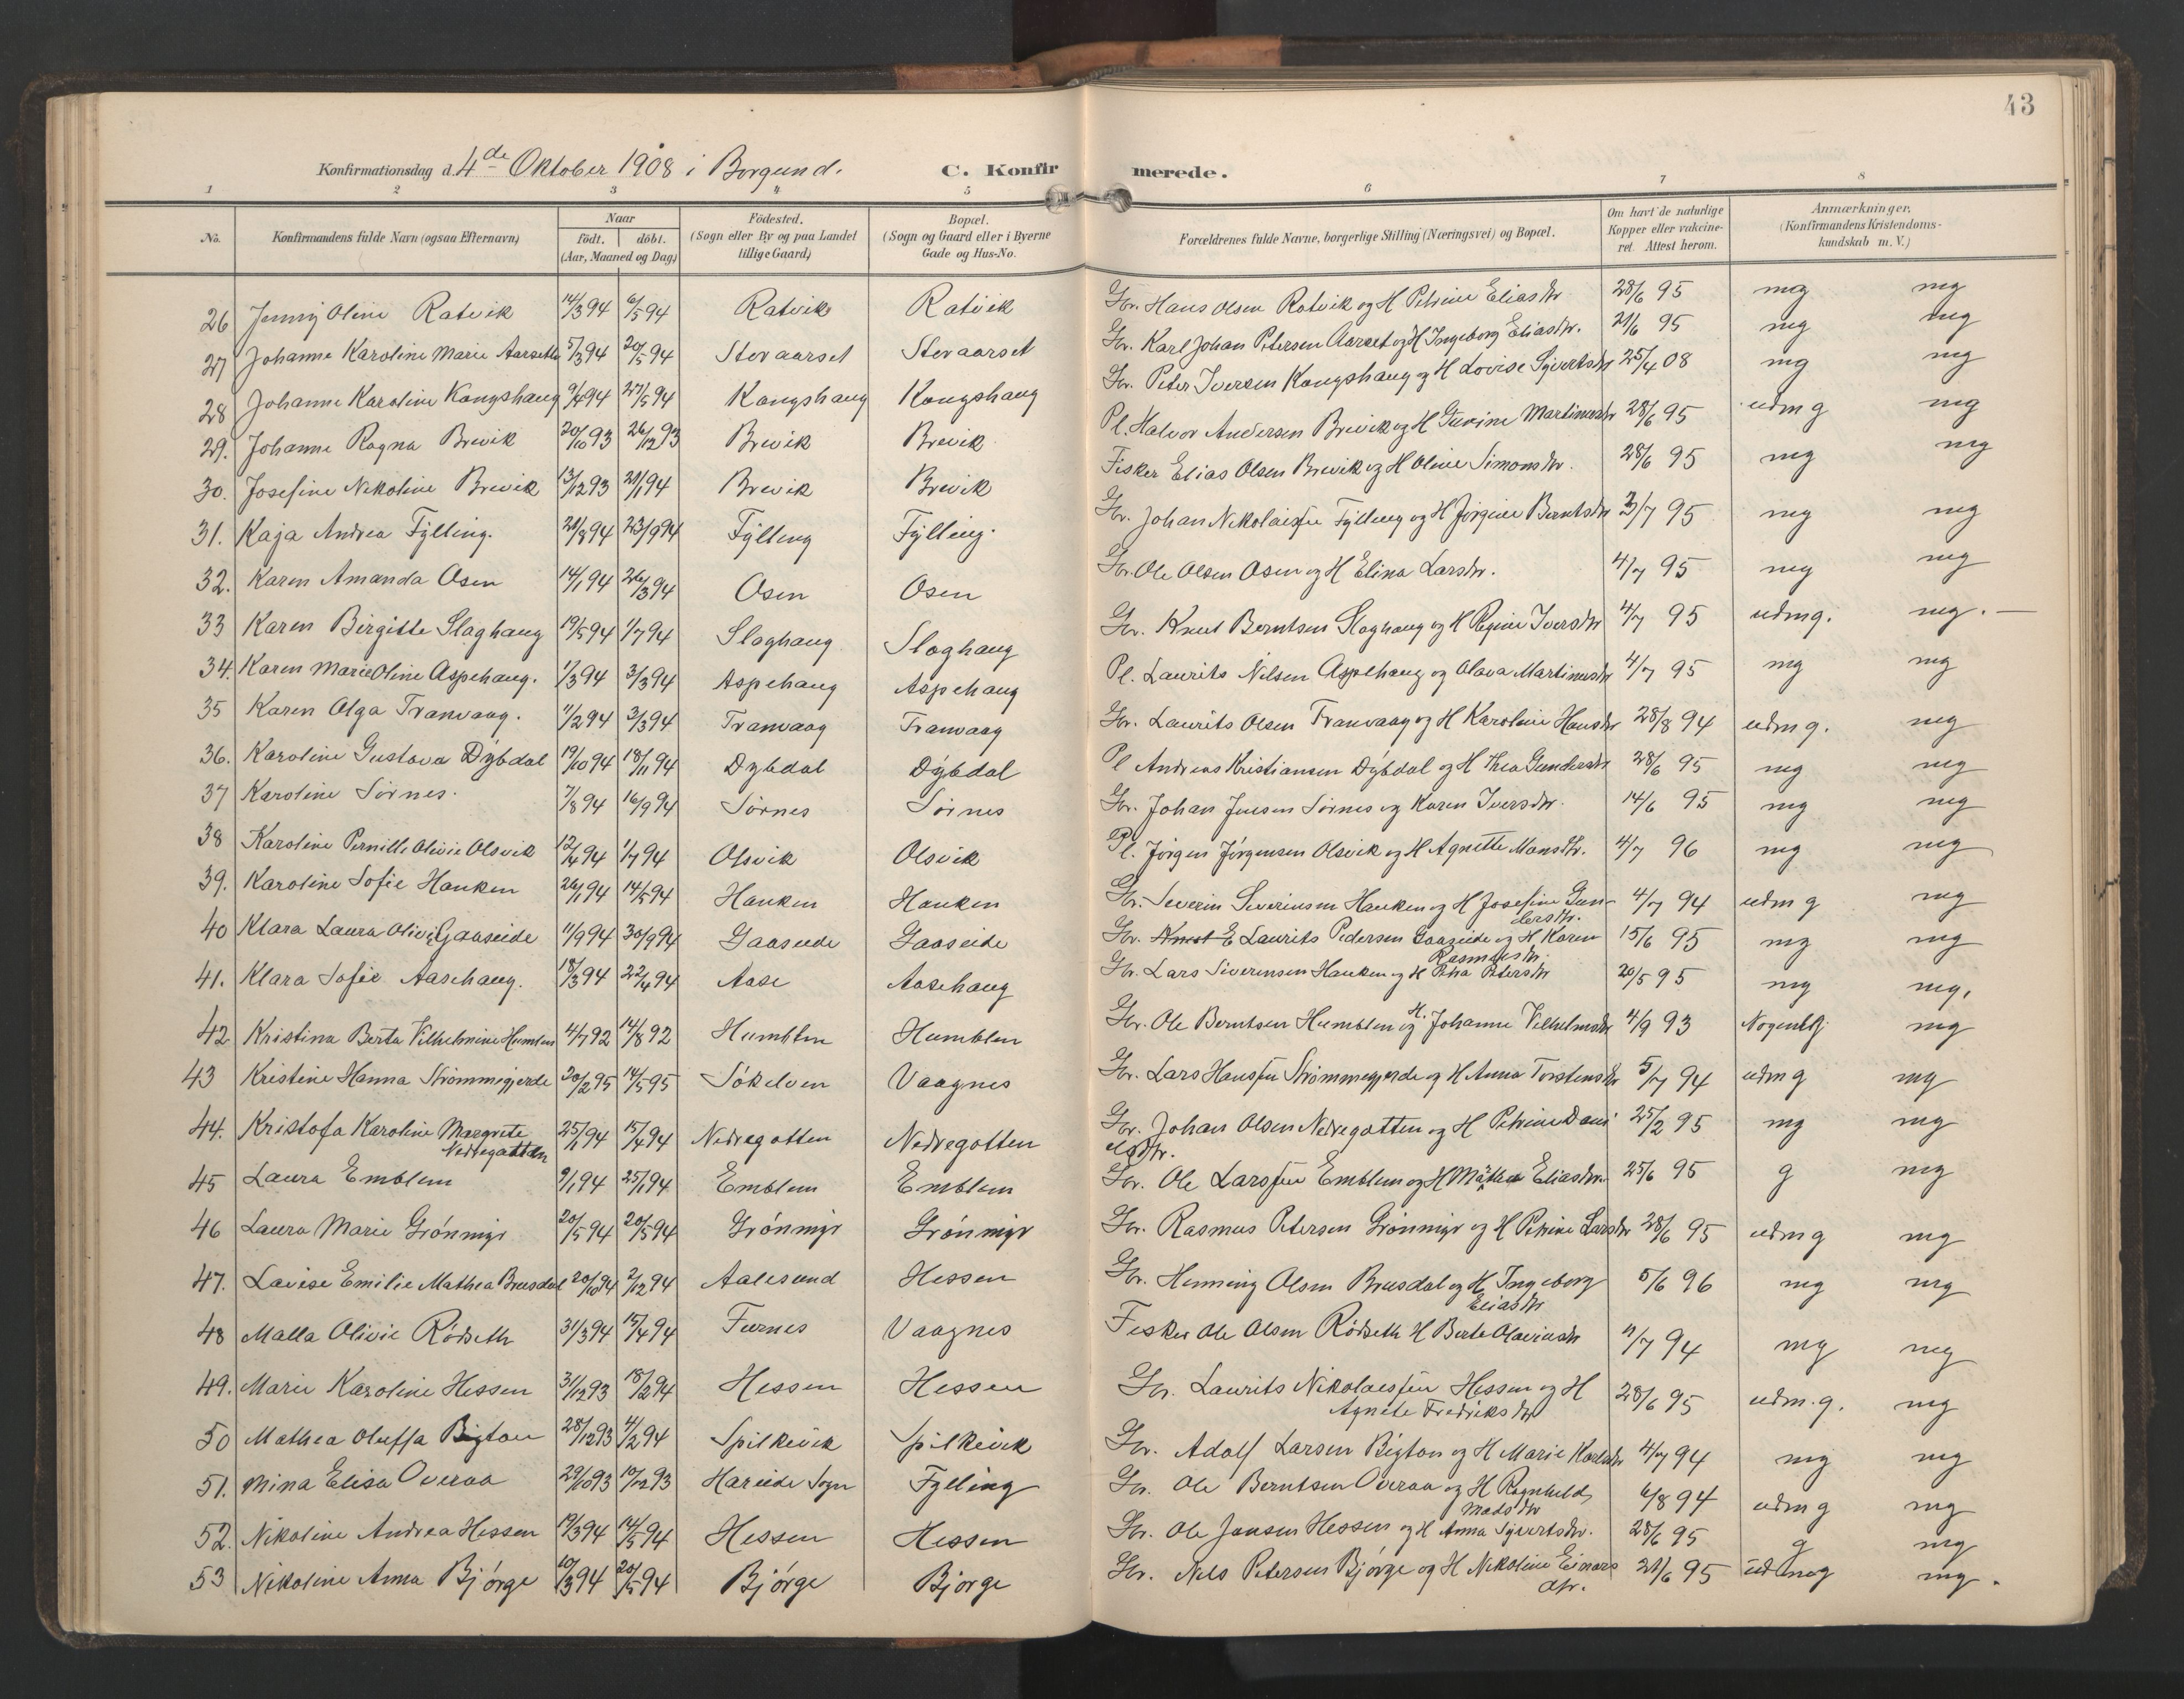 43
Konfirmationsdag d. 4de Oktober 1908 i Borgund. C. Konfirmerede.
1 2 3 4 5 6 7 8
No. Konfirmandens fulde Navn (ogsaa Efternavn) Naar født. døbt. (Aar, Maaned og Dag) Födested. (Sogn eller By og paa Landet tillige Gaard) Bopæl. (Sogn og Gaard eller i Byerne Gade og Hus-No. Forældrenes fulde Navne, borgerlige Stilling (Næringsvei) og Bopæl. Om havt de naturlige Kopper eller vakcineret. Attest herom. Anmærkninger. (Konfirmandens Kristendomskundskab m. V.)
26 Jenny Oline Ratvik 14/3 94 6/5 94 Ratvik Ratvik Gbr. Hans Olsen Ratvik og H Petrine Eliasdtr 28/6 95 mg mg
27 Johanne Karoline Marie Aarseth 5/3 94 20/5 94 Storaarset Storaarset Gbr. Karl Johan Petersen Aarset og H Ingeborg Eliasdtr. 21/6 95 mg mg
28 Johanne Karoline Kongshaug 9/4 94 27/5 94 Kongshaug Kongshaug Gbr. Peter Iversen Kongshaug og H Lovise Syvertsdtr 25/4 08 mg mg
29. Johanne Ragna Brevik 20/10 93 26/12 93 Brevik Brevik Pl. Halvor Andersen Brevik og H Gurine Martinusdtr 28/6 95 udmg mg
30. Josefine Nikoline Brevik 13/12 93 21/1 94 Brevik Brevik Fisker Elias Olsen Brevik og H Oline Simonsdtr. 28/6 95 mg mg
31. Kaja Andrea Fylling. 21/8 94 23/9 94 Fylling Fylling. Gbr. Johan Nikolaisen Fylling og H Jørgine Berntsdtr 3/7 95 mg mg
32. Karen Amanda Osen 14/1 94 26/3 94 Osen Osen Gbr. Ole Olsen Osen og H Elina Larsdtr. 4/7 95 mg mg
33 Karen Birgitte Slaghaug 19/5 94 1/7 94 Slaghaug Slaghaug Gbr. Knut Berntsen Slaghaug og H Regine Iversdtr 4/7 95 udmg. mg. —
34. Karen Marie Oline Aspehaug. 1/3 94 3/3 94 Aspehaug Aspehaug Pl. Laurits Nilsen Aspehaug og Olava Martinusdtr 4/7 95 mg mg
35 Karen Olga Tranvaag. 11/2 94 3/3 94 Tranvaag Tranvaag Gbr. Laurits Olsen Tranvaag og H Karoline Hansdtr 28/8 94 udmg. mg
36. Karoline Gustava Dybdal 19/10 94 18/11 94 Dybdal Dybdal Pl Andreas Kristiansen Dybdal og H Thea Gundersdtr 28/6 95 mg mg
37 Karoline Sørnes. 7/8 94 16/9 94 Sørnes Sørnes Gbr. Johan Jensen Sørnes og Karen Iversdtr. 14/6 95 mg mg
38 Karoline Pernille Olivie Olsvik 12/4 94 1/7 94 Olsvik Olsvik Pl. Jørgen Jørgensen Olsvik og H Agnette Monsdtr. 4/7 96 mg mg
39. Karoline Sofie Hanken 26/1 94 14/5 94 Hanken Hanken Gbr. Severin Severinsen Hanken og H Josefine Gun-
dersdtr. 4/7 94 udmg mg
40 Klara Laura Olivie Gaaseide 11/9 94 30/9 94 Gaaseide Gaaseide Gbr. Laurits Pedersen Gaaseide og H. Karen
Rasmusdtr. 15/6 95 mg mg
41. Klara Sofie Aasehaug. 18/3 94 22/4 94 Aase Aasehaug Gbr. Lars Severinsen Hanken og H Petra Petersdtr 20/5 95 mg mg.
42 Kristina Berta Vilhelmine Humlen 4/7 92 14/8 92 Humblen Humblen Gbr. Ole Berntsen Humblen og H. Johanne Vilhelmsdtr 4/9 93 mg
43 Kristine Hanna Strømmegjerde 20/2 95 14/5 95 Søkelven Vaagnes Gbr. Lars Hansen Strømmegjerde og H Anna Torstensdtr 5/7 94 udmg mg
44. Kristofa Karoline Margrete
Nedregotten 25/1 94 15/4 94 Nedregotten Nedregotten Gbr. Johan Olsen Nedregotten og H Petrine Dani
elsdtr. 25/2 95 mg mg
45 Laura Emblem 9/1 94 25/1 94 Emblem Emblem Gbr. Ole Larssen Emblem og H Mathea Eliasdtr. 25/6 95 g mg
46 Laura Marie Grønmyr 20/5 94 20/5 94 Grønmyr Grønmyr Gbr. Rasmus Petersen Grønmyr og H Petrine Larsdtr 28/6 95 udmg mg
47. Lovise Emilie Mathea Brusdal 20/10 94 2/12 94 Aalesund Hessen Gbr. Henning Olsen Brusdal og H. Ingeborg
Eliasdtr 5/6 96 mg mg
48 Malla Olivie Rødseth 31/3 94 15/4 94 Furnes Vaagnes Fisker Ole Olsen Rødseth H Berte Olaviusdtr 11/7 94 mg mg
49. Marie Karoline Hessen 31/12 93 18/2 94 Hessen Hessen Gbr. Laurits Nikolaisen Hessen og H
Agnete Fredriksdtr 28/6 95 udm.g. mg
50 Mathea Oluffa Bigton 28/12 93 4/2 94 Spilkevik Spilkevik Gbr. Adolf Larsen Bigton og H Marie Karlsdtr 4/7 94 mg mg
51. Mina Elisa Overaa 29/10 93 10/12 93 Hareide Sogn Fylling Gbr. Ole Berntsen Overaa og H Ragnhild
Madsdtr 6/8 94 udmg mg
52. Nikoline Andrea Hessen 19/3 94 14/5 94 Hessen Hessen Gbr. Ole Jansen Hessen og H Anna Syvertsdtr. 28/6 95 g mg
53 Nikoline Anna Bjørge 10/3 94 20/5 94 Bjørge Bjørge Gbr. Nels Petersen Bjørge og H Nikoline Einars
dtr. 21/6 95 udmg mg.